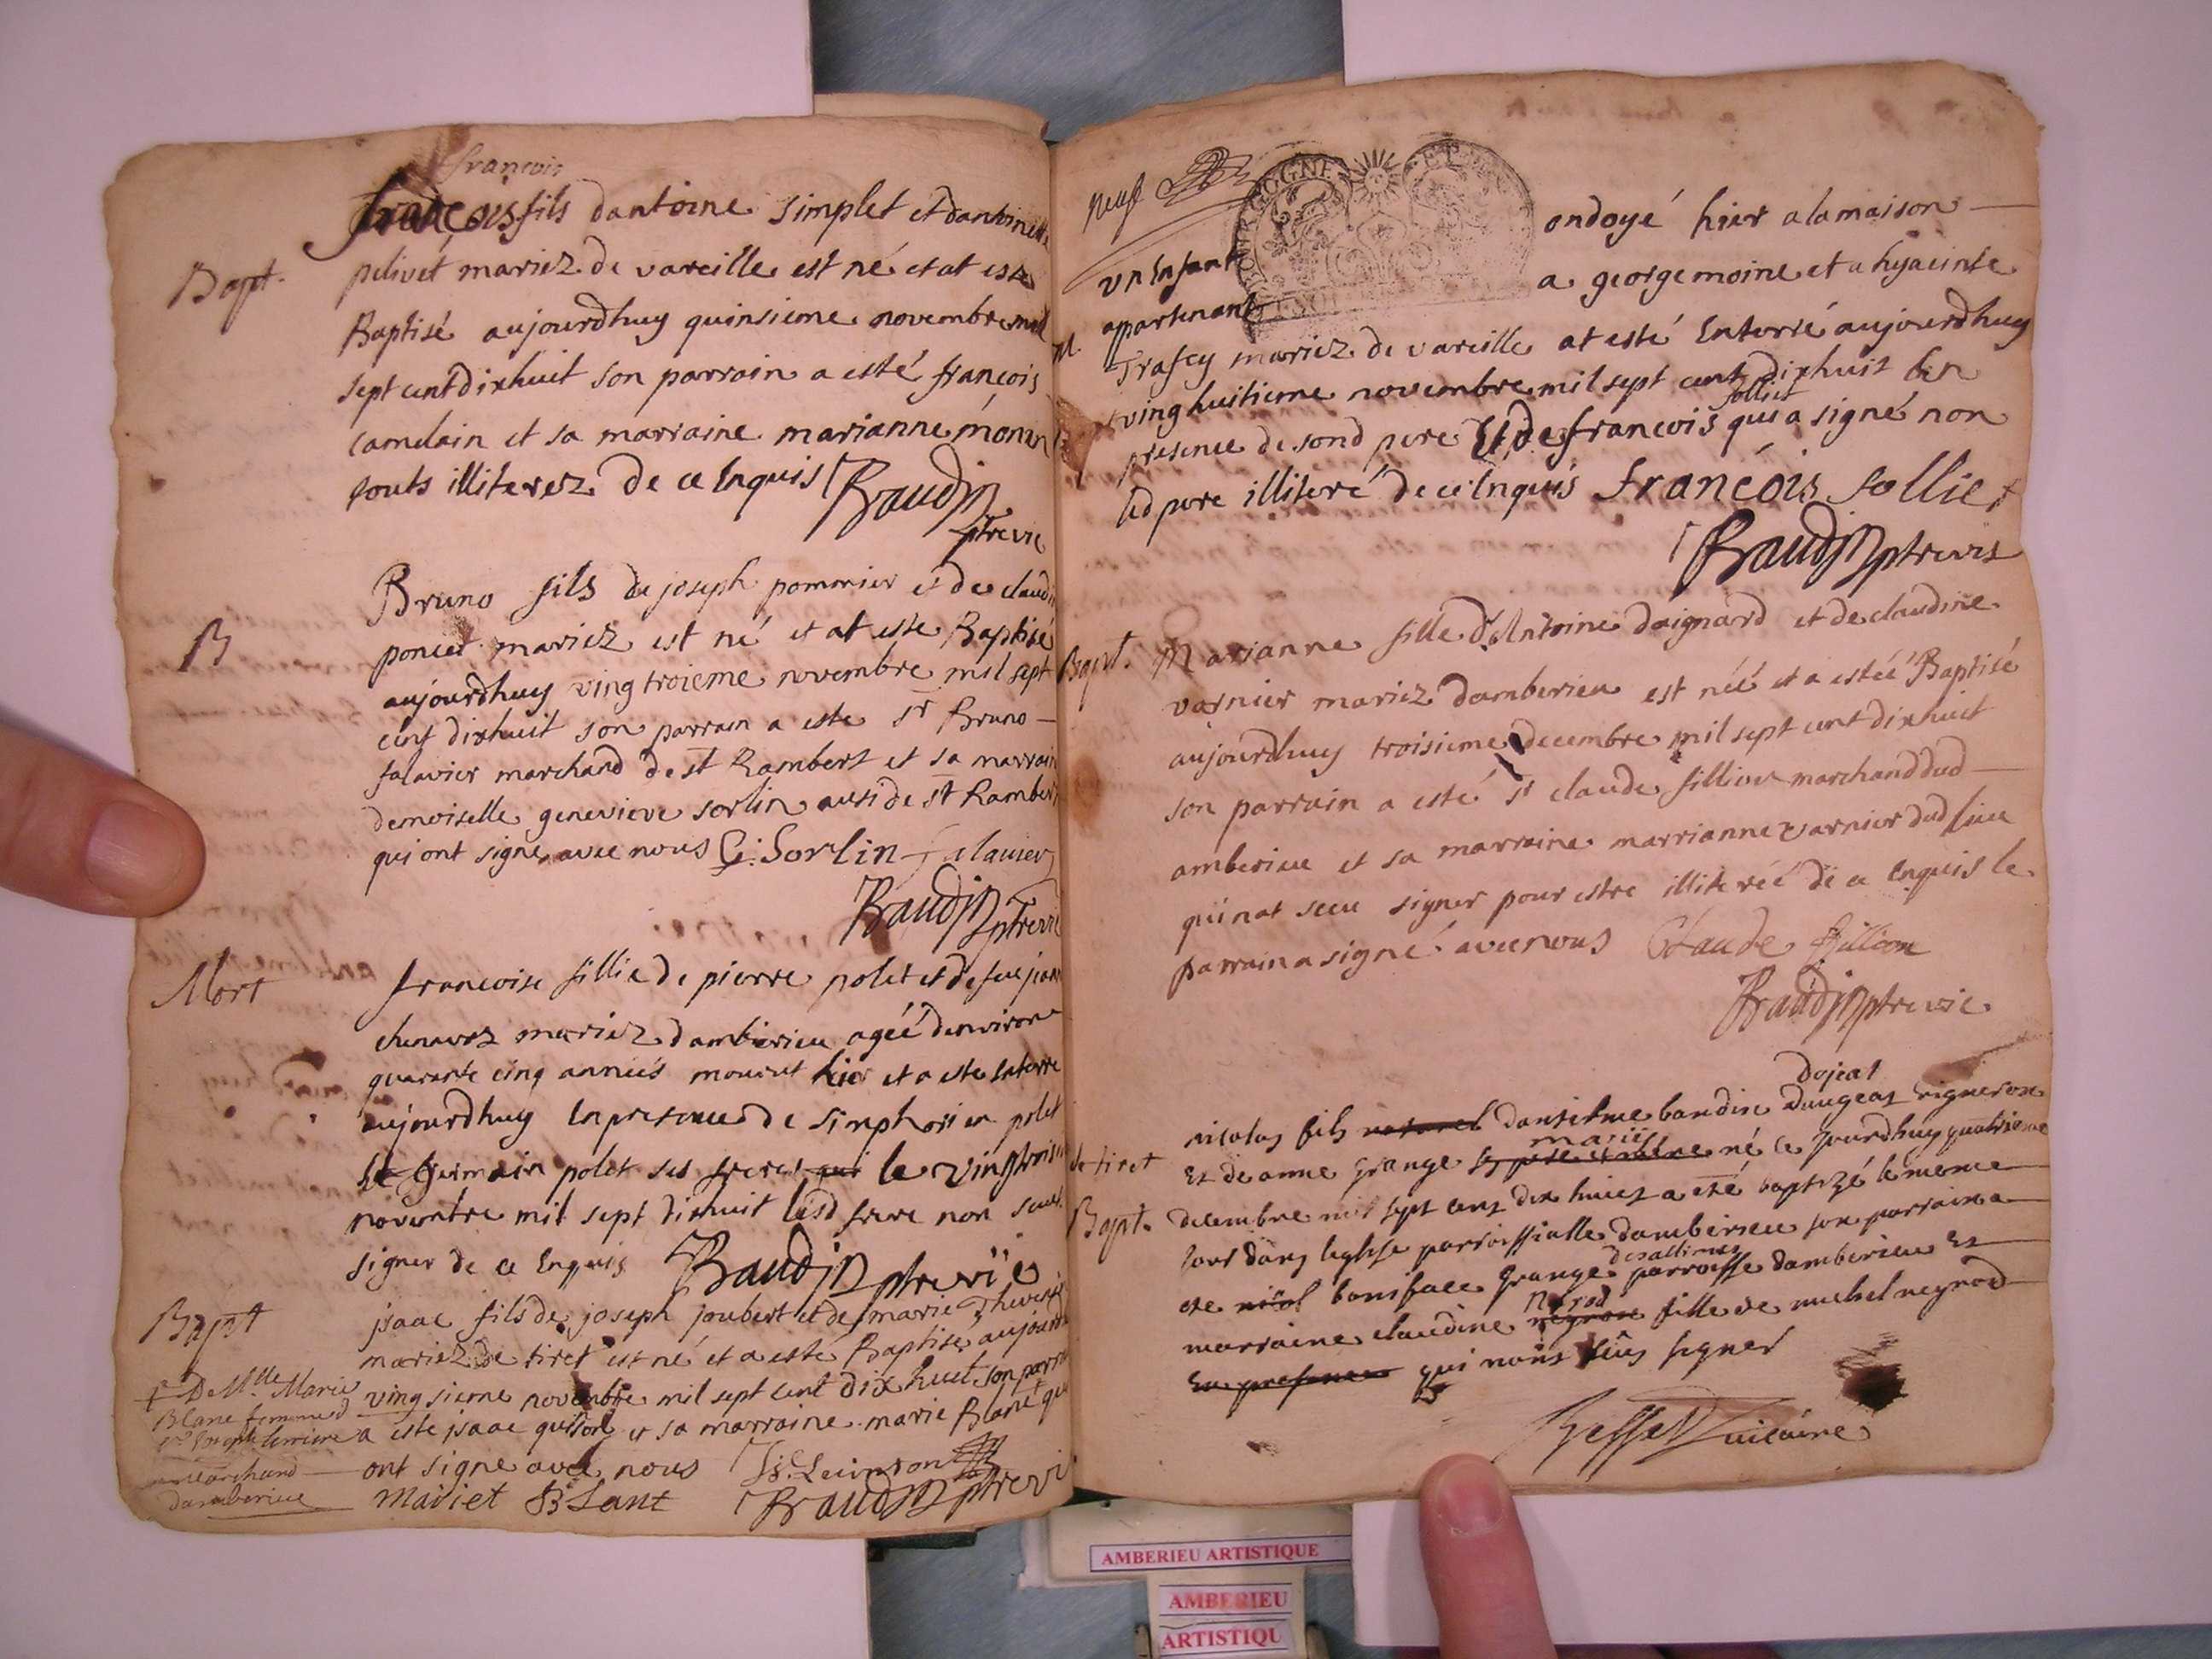 françois
françois fils dantoine simplet et dantoinette
Bapt. pelivet mariez de vareille est né et at este
Baptisé aujourdhuy quinsieme novembre mil
sept cent dixhuit son parrain a esté françois
camelain et sa marraine marianne monin
touts illiterez de ce Enquis Baudin
ptre vic
Bruno fils de joseph pommier et de claudi
B poncet mariez est né et at este Baptisé
aujourdhuy ving troieme novembre mil sept
cent dixhuit son parrain a este sr Bruno
falavier marchand de st Rambert et sa marrain
demoiselle genevieve sorlin ausi de st Rambert
qui ont signe avec nous G: Sorlin falavier
Baudin ptre vic
Mort francoise fillie de pierre polet et de feue jean
mariez damberieu agéé denviron
quarante cinq annéés mourut hier et a este Enterre
aujourdhuy En presence de simphorien polet
Germain polet ses freres qui le vingtroisie
novembre mil sept dixhuit lesd frere non sceu
signer de ce Enquis Baudin ptre vic
Bapt jsaac fils de joseph joubert et de marie
mariez de tiret est né et a esté Baptise aujourd
+ De Mlle Marie ving sieme novembre mil sept cent dix huit son parra
Blanc femme d a este jsaac quison et sa marraine marie Blanc + qui
sr Joseph
marchand ont signe avec nous
damberieu mariet BLant Baudin ptre vi
neuf
ondoyé hier a la maison
vn Enfant a george moine et a hyacinte
appartenant
M trafey mariez de vareille at esté Enterré aujourdhuy
ving huitieme novembre mil sept cent dixhuit En
follict
presence de sond pere Et de francois qui a signé non
led pere illiteré de ce Enquis françois follict
Baudin ptre vic
Bapt. Marianne fille d'Antoine daignard et de claudine
varnier mariez damberieu est néé et a estéé Baptisé
aujourdhuy troisieme decembre mil sept cent dixhuit
son parrain a esté sr claude fillion marchand dud
amberieu et sa marraine marrianne varnier dud lieu
qui nat sceu signer pour estre illiteréé de ce Enquis le
parrain a signé avec nous Claude fillion
Baudin ptre vic
dojeat
nicolas fils naturel dantelme baudin daugeat vigneron
mariés
de tiret Et de anne grange ses pere et mere né ce jourdhuy quatrieme
Bapt. decembre mil sept cens dix huict a eté baptizé le meme
jour dans leglise parroissialle damberieu son parrain a
des allimes
ete nicol boniface grange parroisse damberieu Et
Negrod
marraine claudine negron fille de michel negrod
En presence qui nont sceus signer
Besset vicaire
AMBERIEU ARTISTIQUE
AMBERIEU
ARTISTIQU